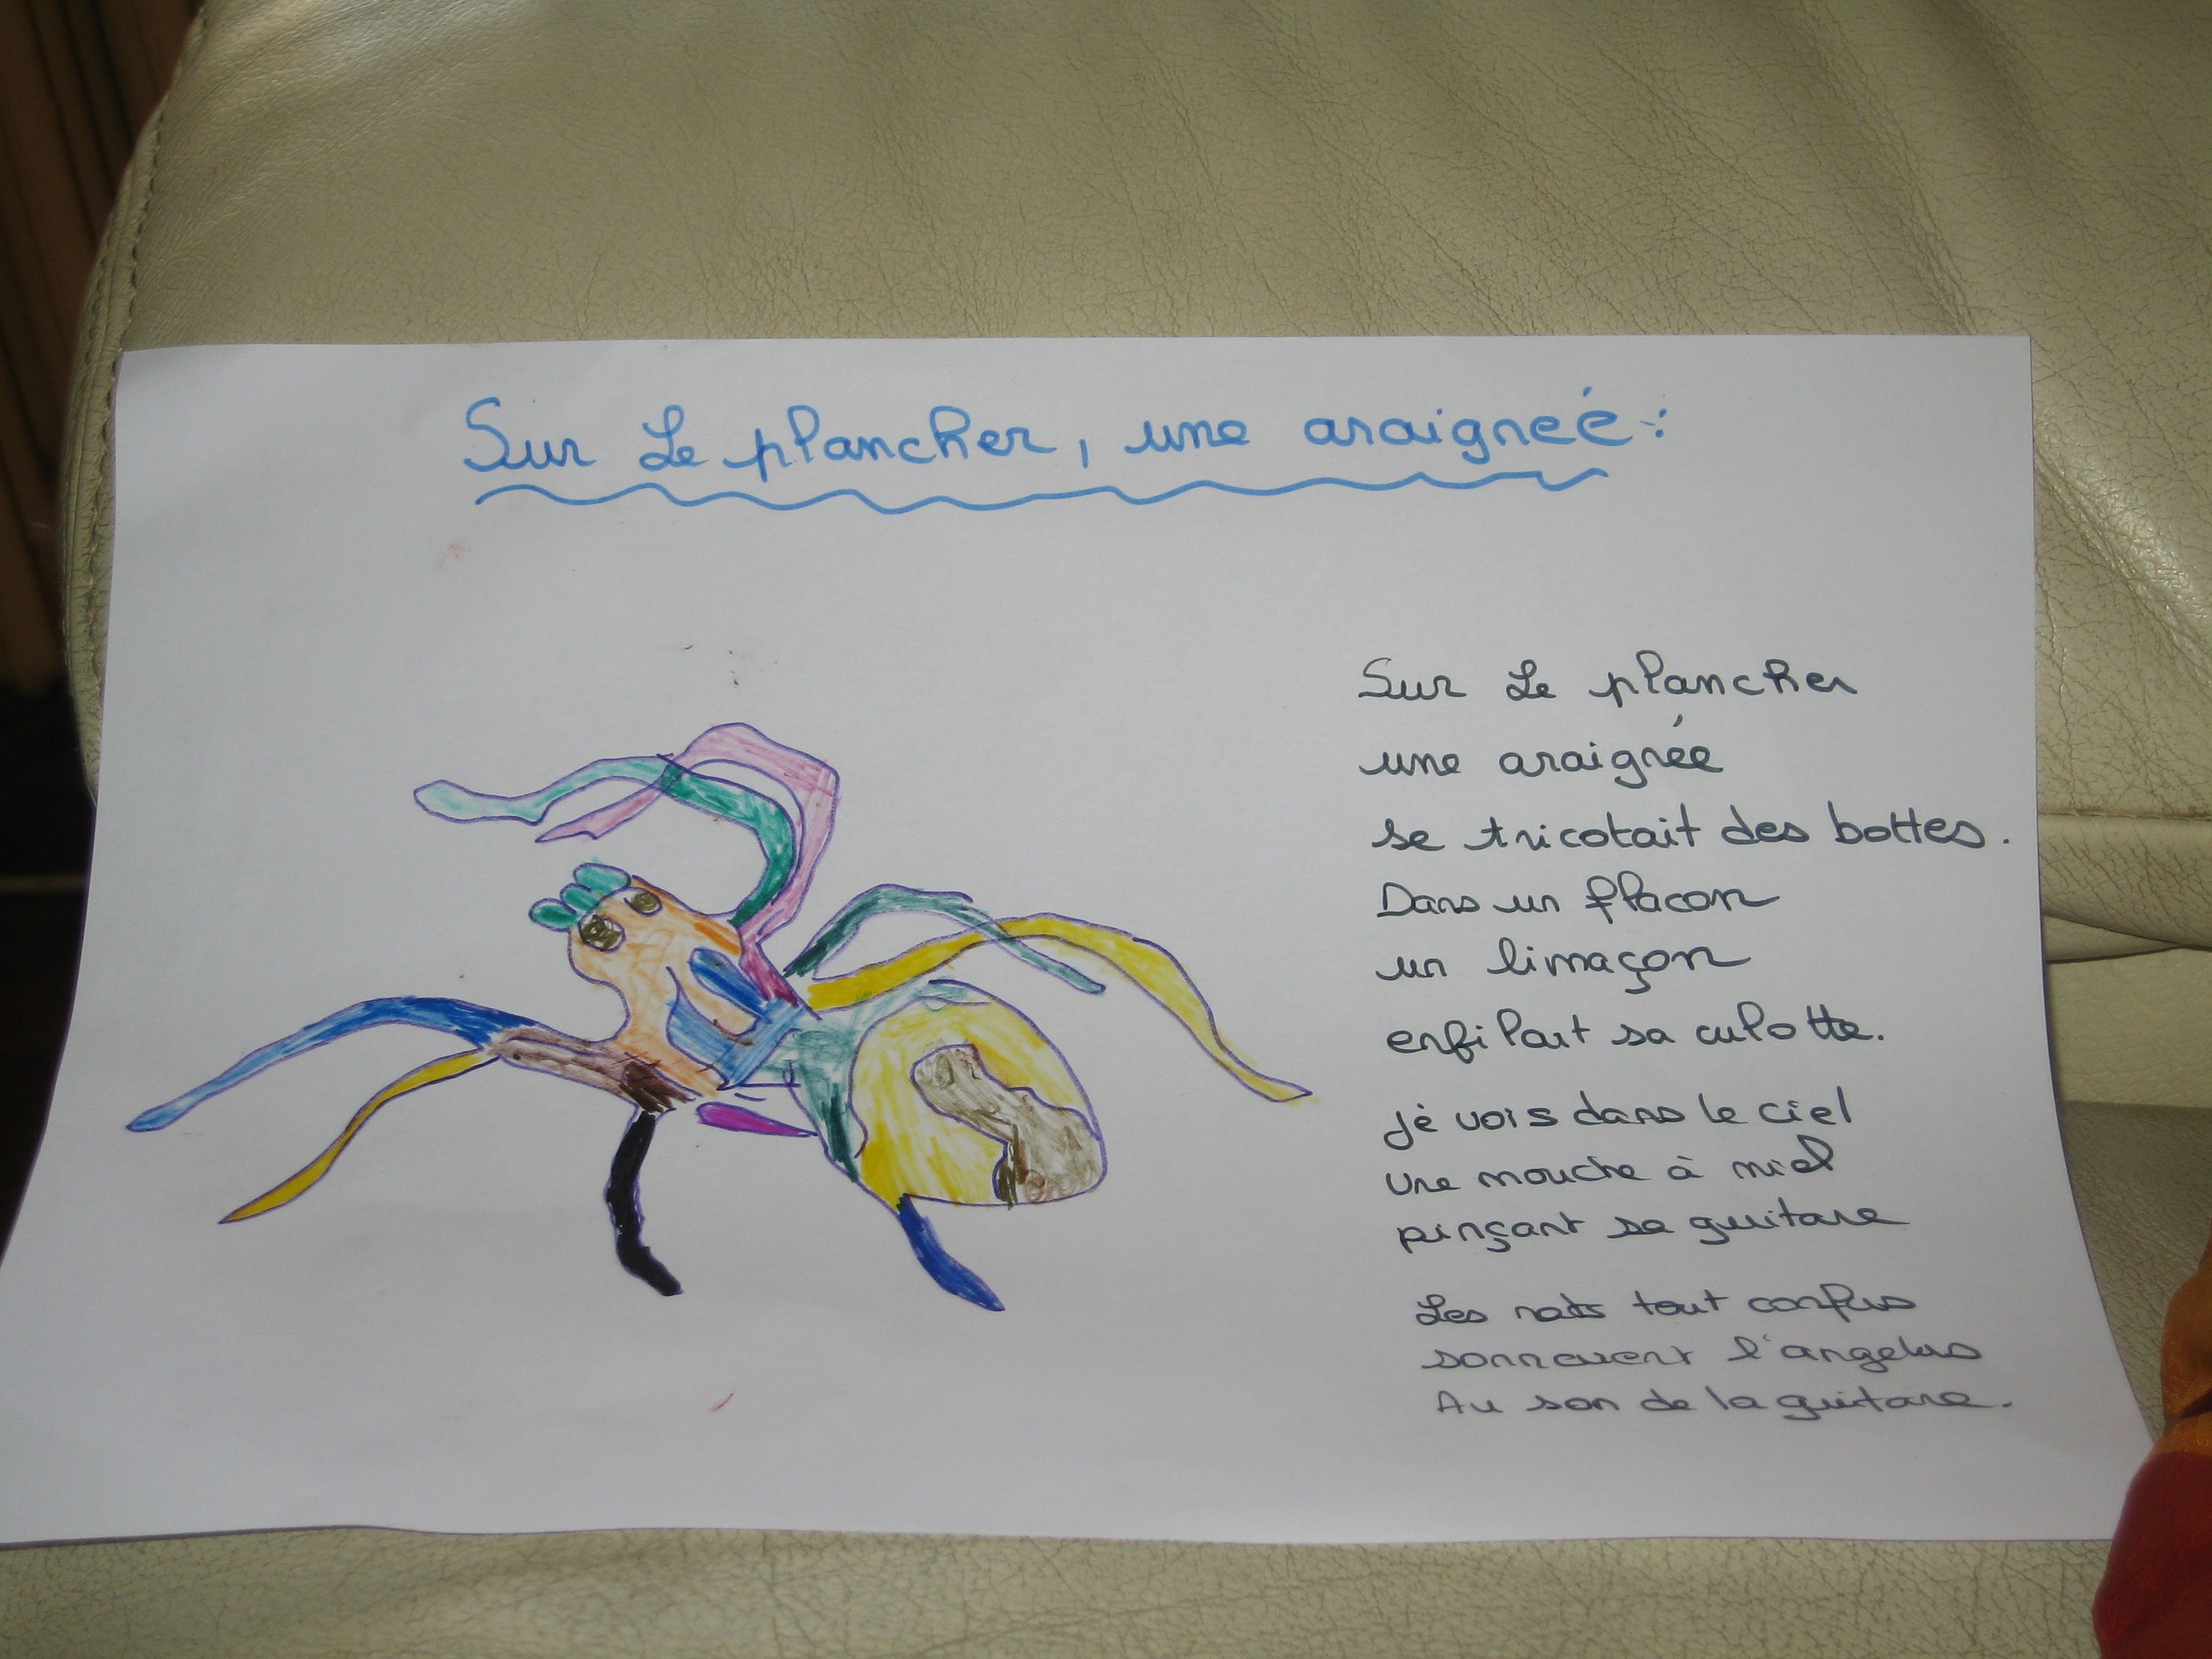 Sur Le plancher, une araigneé :
Sur Le plancher
une araignée
se tricotait des bottes.
Dans un flacon
un limaçon
enfilait sa culotte.
jè vois dans le ciel
une mouche à miel
pinçant sa guitare
Les rats tout confus
sonnaient l'angelus
Au son de la guitare.